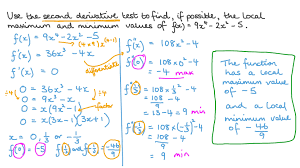 Use the second derivative test to find, if possible, the local
maximum and minimum values of f(x) = 9x⁴ - 2x² - 5.
f(x) = 9x⁴ - 2x² - 5
f'(x) = 36x³ - 4x
f'(x) = 0
÷4 0 = 36x³ - 4x ÷4
0 = 9x³ - x
0 = x(9x² - 1) factor
0 = x(3x - 1)(3x + 1)
x = 0, 1/3 or -1/3
f(0) = -5 f(1/3) = f(-1/3) = -46/9
differentiate
f"(x) = 108x² - 4
f"(0) = 108×0² - 4
= -4 max
f"(1/3) = 108×(1/3)² - 4
= 108/9 - 4
min
f"(-1/3) = 108×(-1/3)² - 4
= 108/9 - 4
min
The function
has a local
maximum value
of -5
and a local
minimum value
of -46/9